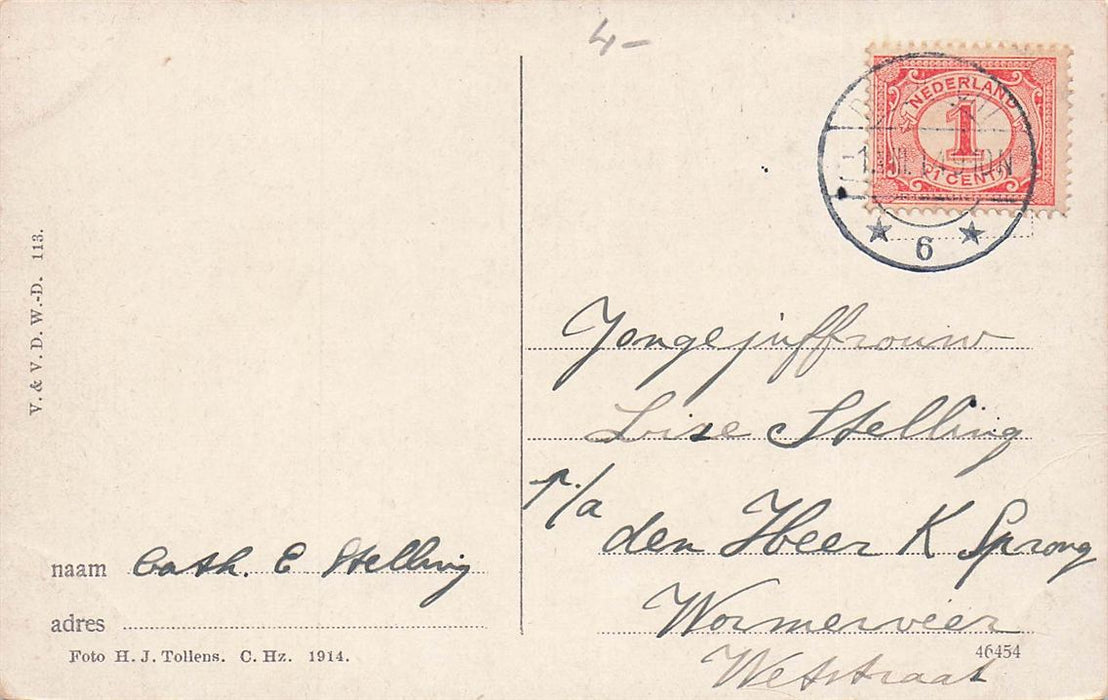 4-
NEDERLAND
1
CENT
6
V. & V. D. W.-D. 113.
Jongejuffrouw
Lize Stelling
p/a
den Heer K Sprong
Wormerveer
Wetstraat
naam Cath. E Stelling
adres
Foto H. J. Tollens. C. Hz. 1914.
46454